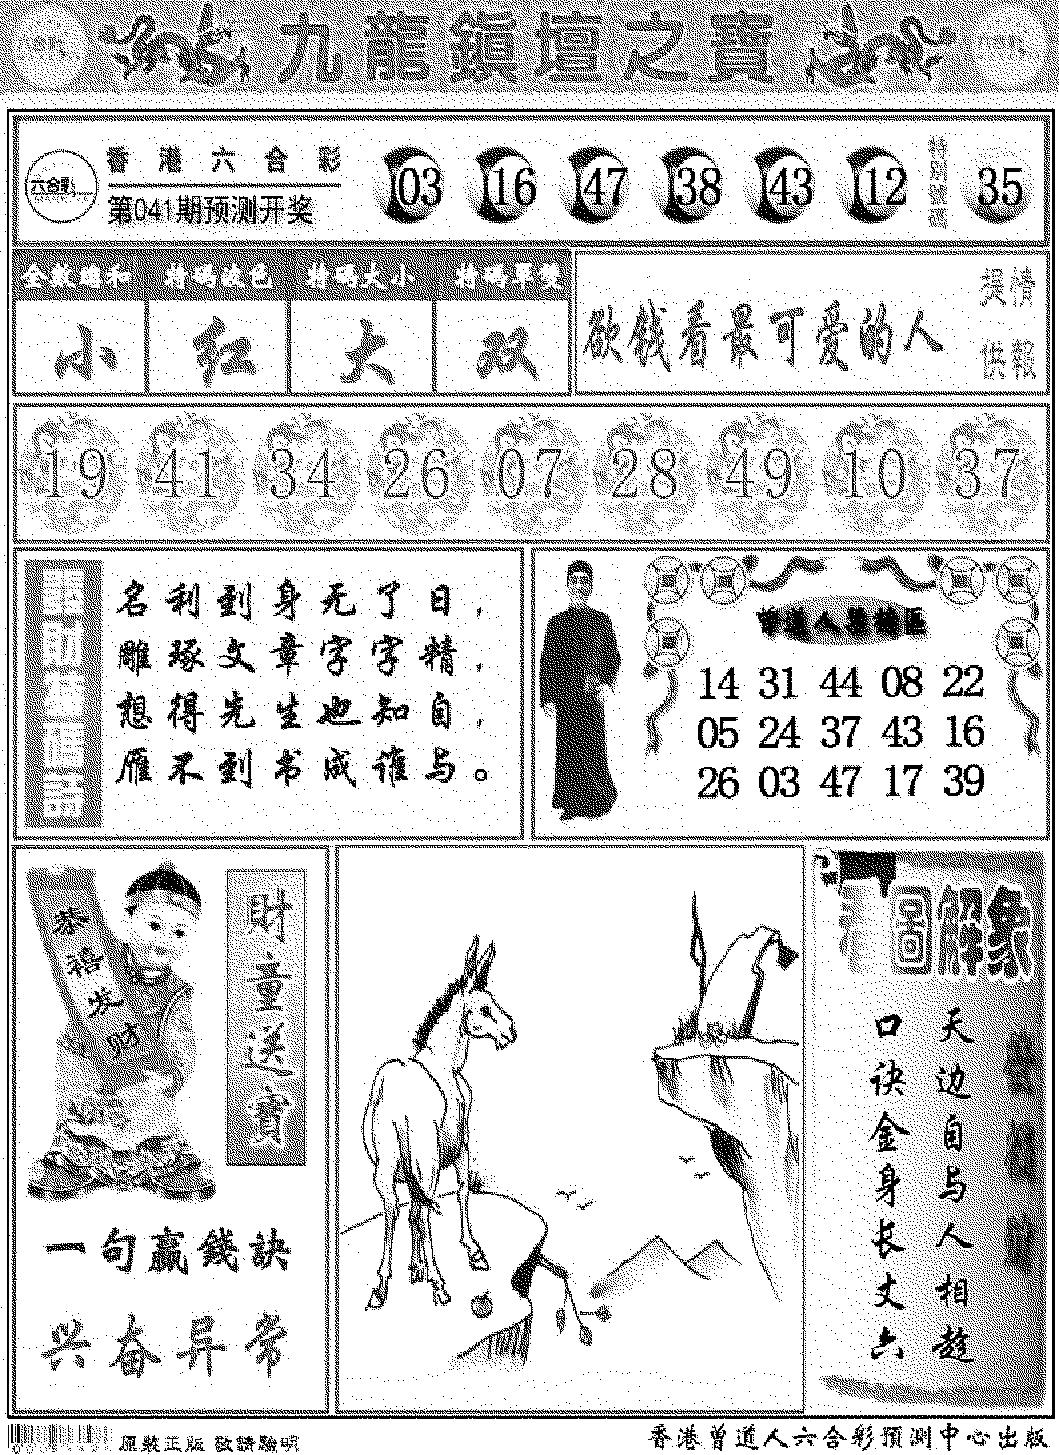 九龍鎮壇之寶
香港六合彩
六合彩
第041期预测开奖
03 16 47 38 43 12
特别號碼
35
特码波色 特码大小 特码单雙
小 红 大 双
欲钱看最可爱的人
19 41 34 26 07 28 49 10 37
名利到身无了日，
雕琢文章字字精，
想得先生也知自，
雁不到书成谁与。
14 31 44 08 22
05 24 37 43 16
26 03 47 17 39
恭禧发财
財童送寶
一句赢錢訣
兴奋异常
圖解象
天边自与人相趋
口诀金身长丈六
原裝正版 敬請驗明
香港曾道人六合彩预测中心出版